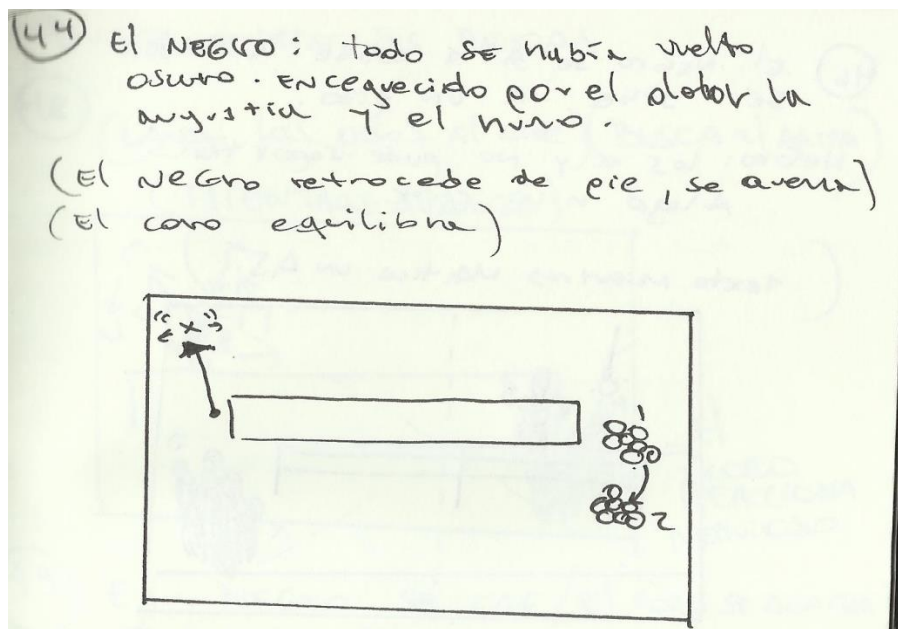 44 El NEGRO: todo SE había vuelto
oscuro. ENCEGUECIDO por el dolor la
angustia y el niño.
(El NEGRO retrocede de pie, se aterra)
(El coro equilibra)
x
1
2